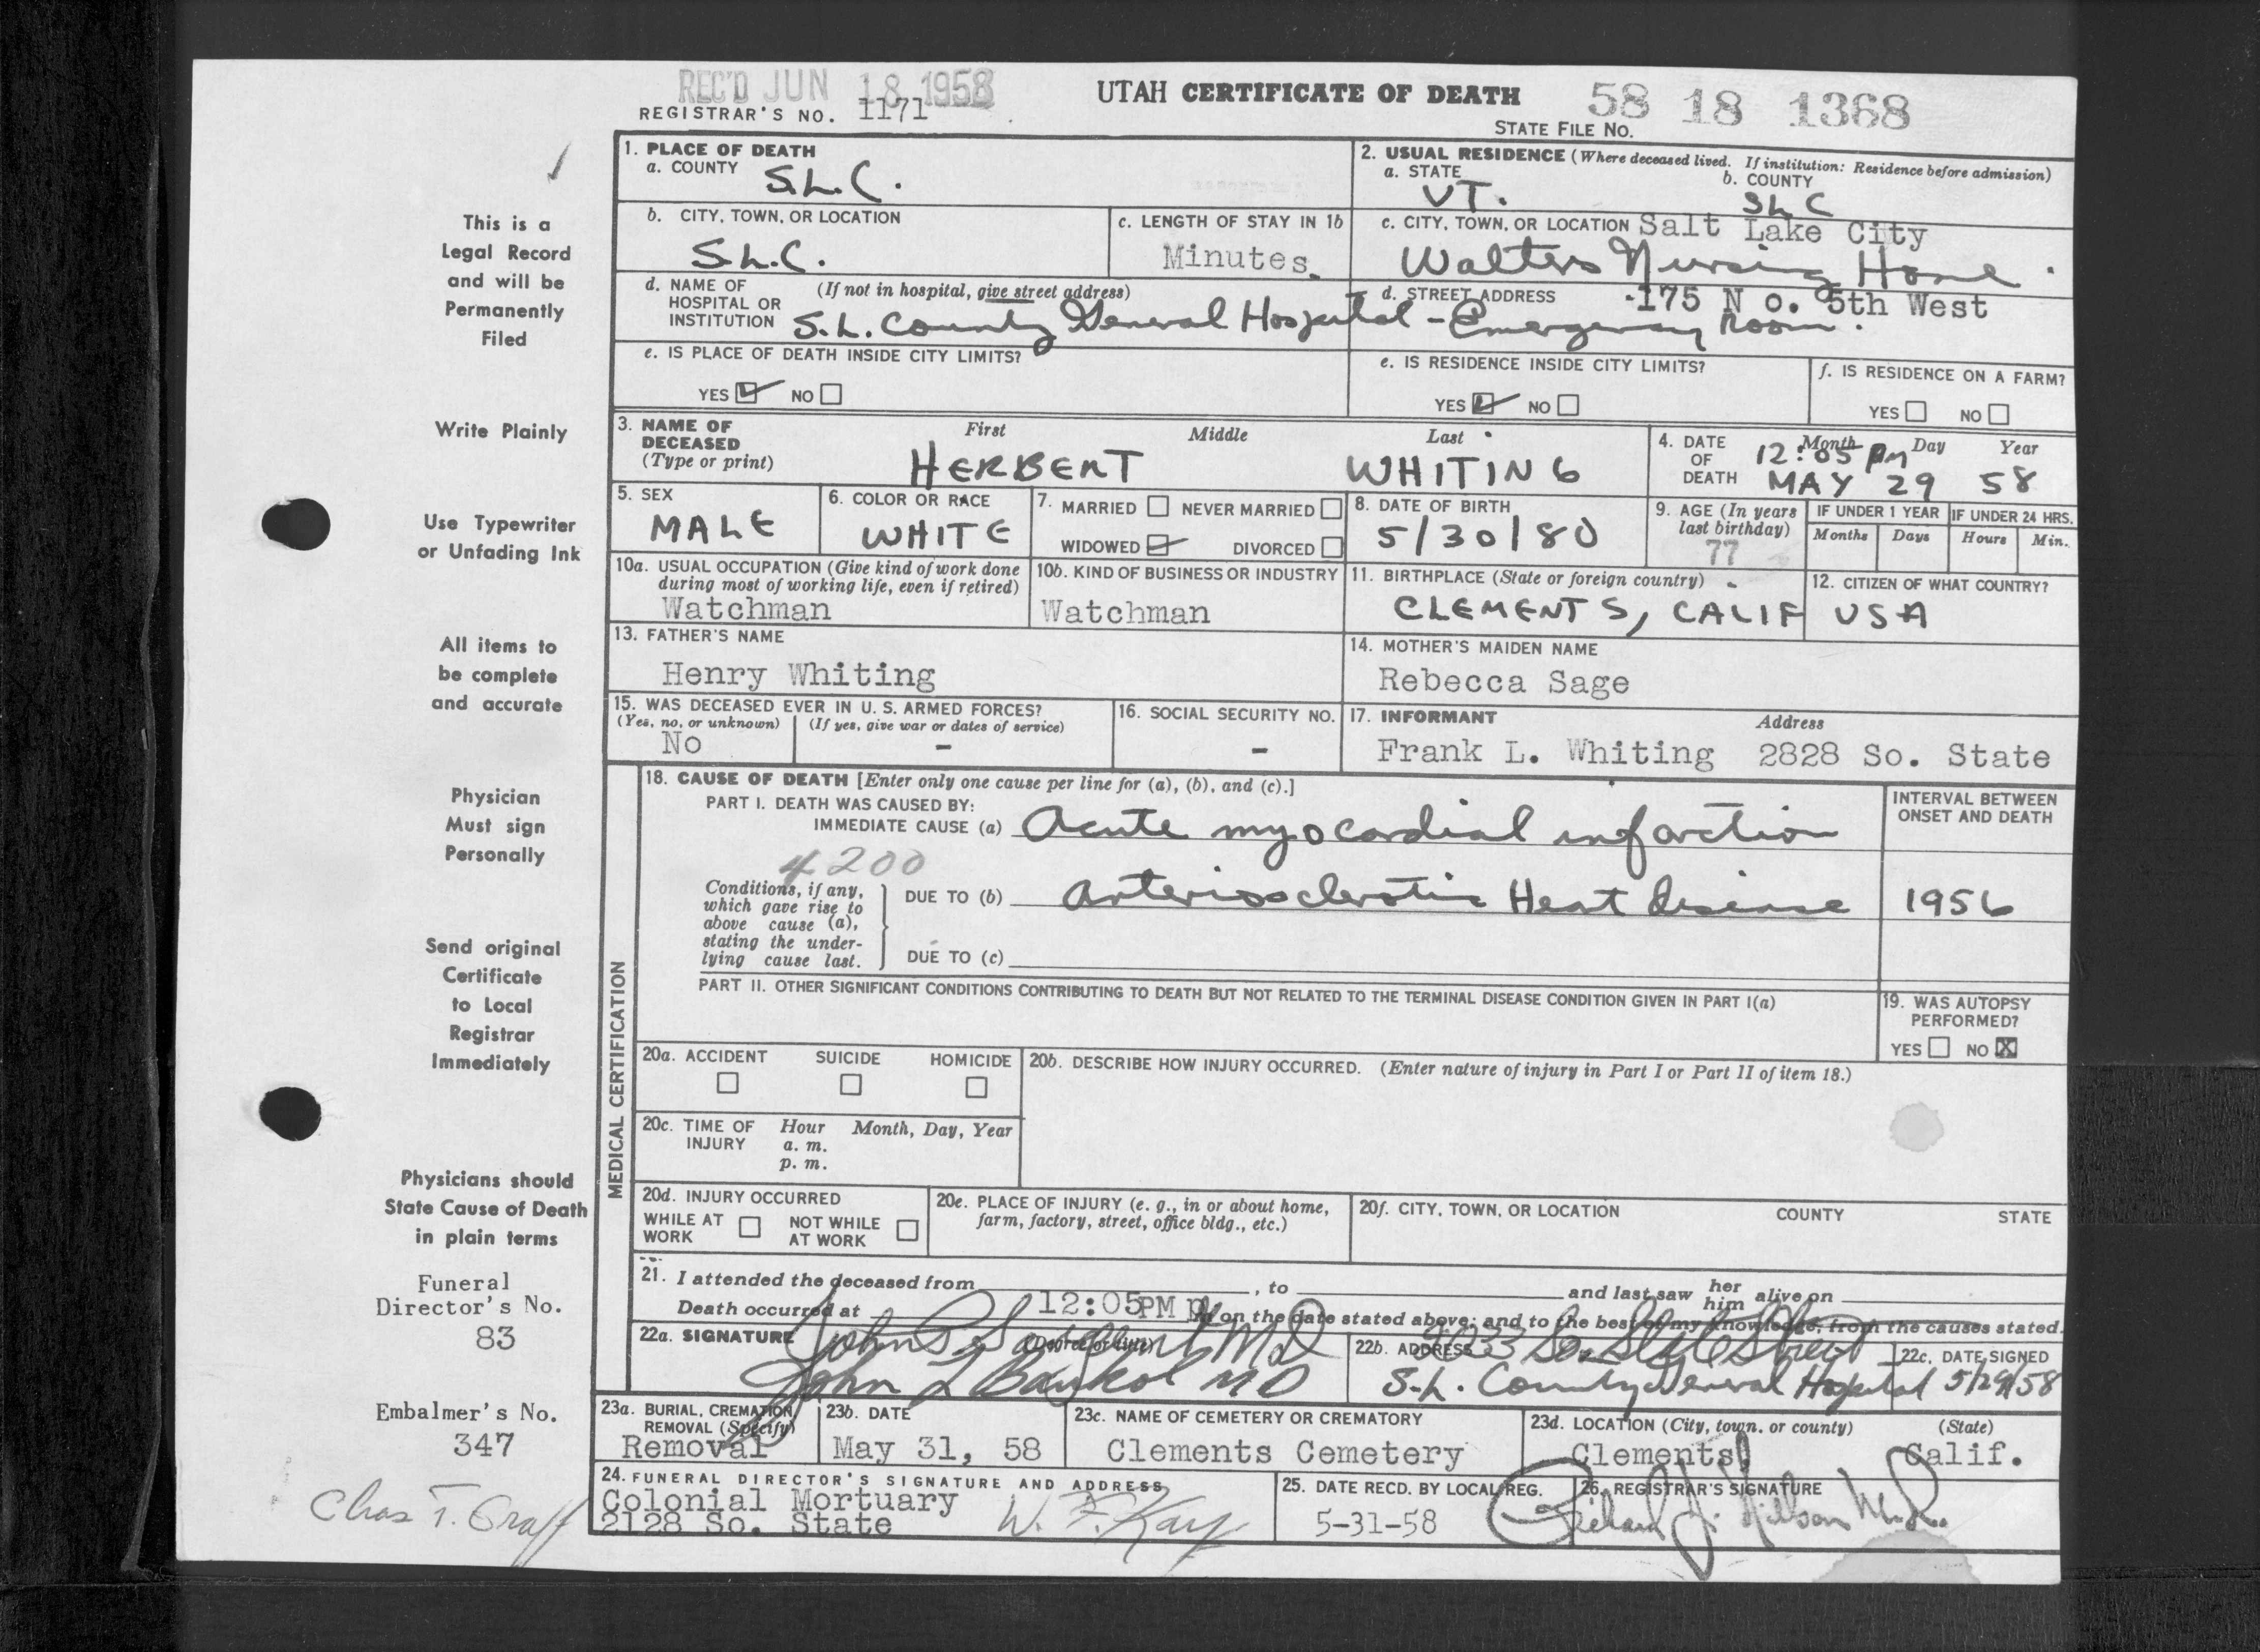 REC'D JUN 18 1958
REGISTRAR'S NO. 1171
UTAH CERTIFICATE OF DEATH
58 18 1368
STATE FILE NO.
This is a
Legal Record
and will be
Permanently
Filed
Write Plainly
Use Typewriter
or Unfading Ink
All items to
be complete
and accurate
Physician
Must sign
Personally
Send original
Certificate
to Local
Registrar
Immediately
Physicians should
State Cause of Death
in plain terms
Funeral
Director's No.
83
Embalmer's No.
347
Chas T. Graff
1. PLACE OF DEATH
a. COUNTY S.L.C.
b. CITY, TOWN, OR LOCATION
S.L.C.
c. LENGTH OF STAY IN 1b
Minutes.
d. NAME OF HOSPITAL OR INSTITUTION (If not in hospital, give street address)
S.L. County General Hospital - Emergency Room.
e. IS PLACE OF DEATH INSIDE CITY LIMITS?
YES NO
2. USUAL RESIDENCE (Where deceased lived. If institution: Residence before admission)
a. STATE UT.
b. COUNTY SLC
c. CITY, TOWN, OR LOCATION Salt Lake City
Walters Nursing Home.
d. STREET ADDRESS -175 N o. 5th West
e. IS RESIDENCE INSIDE CITY LIMITS?
YES NO
f. IS RESIDENCE ON A FARM?
YES NO
3. NAME OF DECEASED (Type or print)
First Middle Last
HERBERT WHITING
4. DATE OF DEATH
Month Day Year
12:05 PM
MAY 29 58
5. SEX
MALE
6. COLOR OR RACE
WHITE
7. MARRIED NEVER MARRIED
WIDOWED DIVORCED
8. DATE OF BIRTH
5/30/80
9. AGE (In years last birthday)
77
IF UNDER 1 YEAR
Months Days
IF UNDER 24 HRS.
Hours Min.
10a. USUAL OCCUPATION (Give kind of work done during most of working life, even if retired)
Watchman
10b. KIND OF BUSINESS OR INDUSTRY
Watchman
11. BIRTHPLACE (State or foreign country)
CLEMENTS, CALIF
12. CITIZEN OF WHAT COUNTRY?
USA
13. FATHER'S NAME
Henry Whiting
14. MOTHER'S MAIDEN NAME
Rebecca Sage
15. WAS DECEASED EVER IN U. S. ARMED FORCES?
(Yes, no, or unknown) (If yes, give war or dates of service)
No -
16. SOCIAL SECURITY NO.
-
17. INFORMANT Address
Frank L. Whiting 2828 So. State
MEDICAL CERTIFICATION
18. CAUSE OF DEATH [Enter only one cause per line for (a), (b), and (c).]
PART I. DEATH WAS CAUSED BY:
IMMEDIATE CAUSE (a) Acute myocardial infarction
4200
Conditions, if any, which gave rise to above cause (a), stating the underlying cause last.
DUE TO (b) Arteriosclerotic Heart Disease
DUE TO (c)
INTERVAL BETWEEN ONSET AND DEATH
1956
PART II. OTHER SIGNIFICANT CONDITIONS CONTRIBUTING TO DEATH BUT NOT RELATED TO THE TERMINAL DISEASE CONDITION GIVEN IN PART I(a)
19. WAS AUTOPSY PERFORMED?
YES NO X
20a. ACCIDENT SUICIDE HOMICIDE
20b. DESCRIBE HOW INJURY OCCURRED. (Enter nature of injury in Part I or Part II of item 18.)
20c. TIME OF INJURY Hour Month, Day, Year
a. m.
p. m.
20d. INJURY OCCURRED
WHILE AT WORK NOT WHILE AT WORK
20e. PLACE OF INJURY (e. g., in or about home, farm, factory, street, office bldg., etc.)
20f. CITY, TOWN, OR LOCATION COUNTY STATE
21. I attended the deceased from , to and last saw her him alive on
Death occurred at 12:05PM m on the date stated above; and to the best of my knowledge, from the causes stated.
22a. SIGNATURE (Degree or title)
John M D
John MD
22b. ADDRESS So. State Street
S.L. County General Hospital
22c. DATE SIGNED
5/29/58
23a. BURIAL, CREMATION, REMOVAL (Specify)
Removal
23b. DATE
May 31, 58
23c. NAME OF CEMETERY OR CREMATORY
Clements Cemetery
23d. LOCATION (City, town, or county) (State)
Clements Calif.
24. FUNERAL DIRECTOR'S SIGNATURE AND ADDRESS
Colonial Mortuary
2128 So. State W. F. Kay
25. DATE RECD. BY LOCAL REG.
5-31-58
26. REGISTRAR'S SIGNATURE
Richard J. Nilson